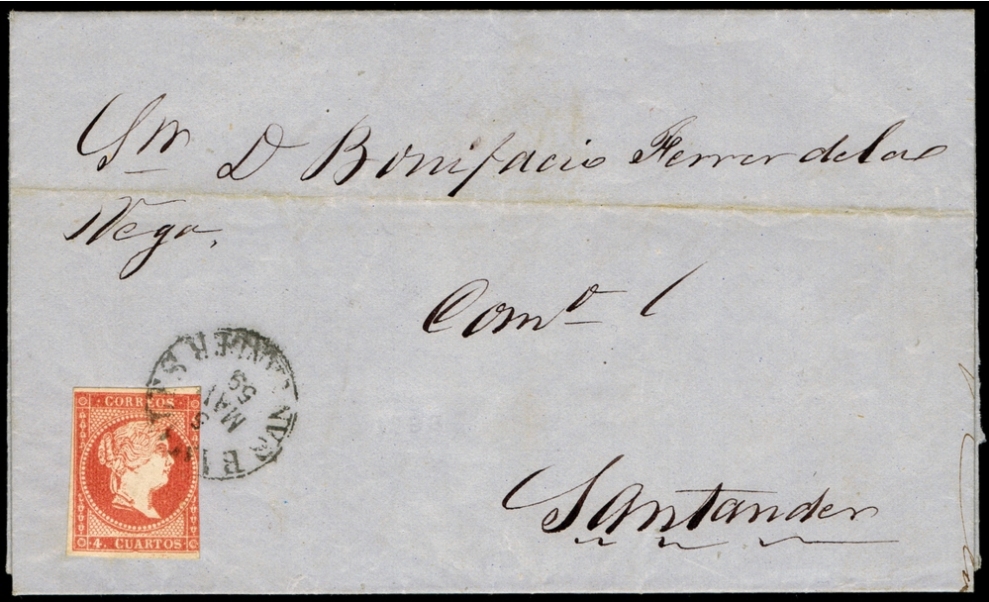 Sr D Bonifacio Ferrer de la
Vega.
Com.º
Santander
CORREOS
4. CUARTOS
MAY
59